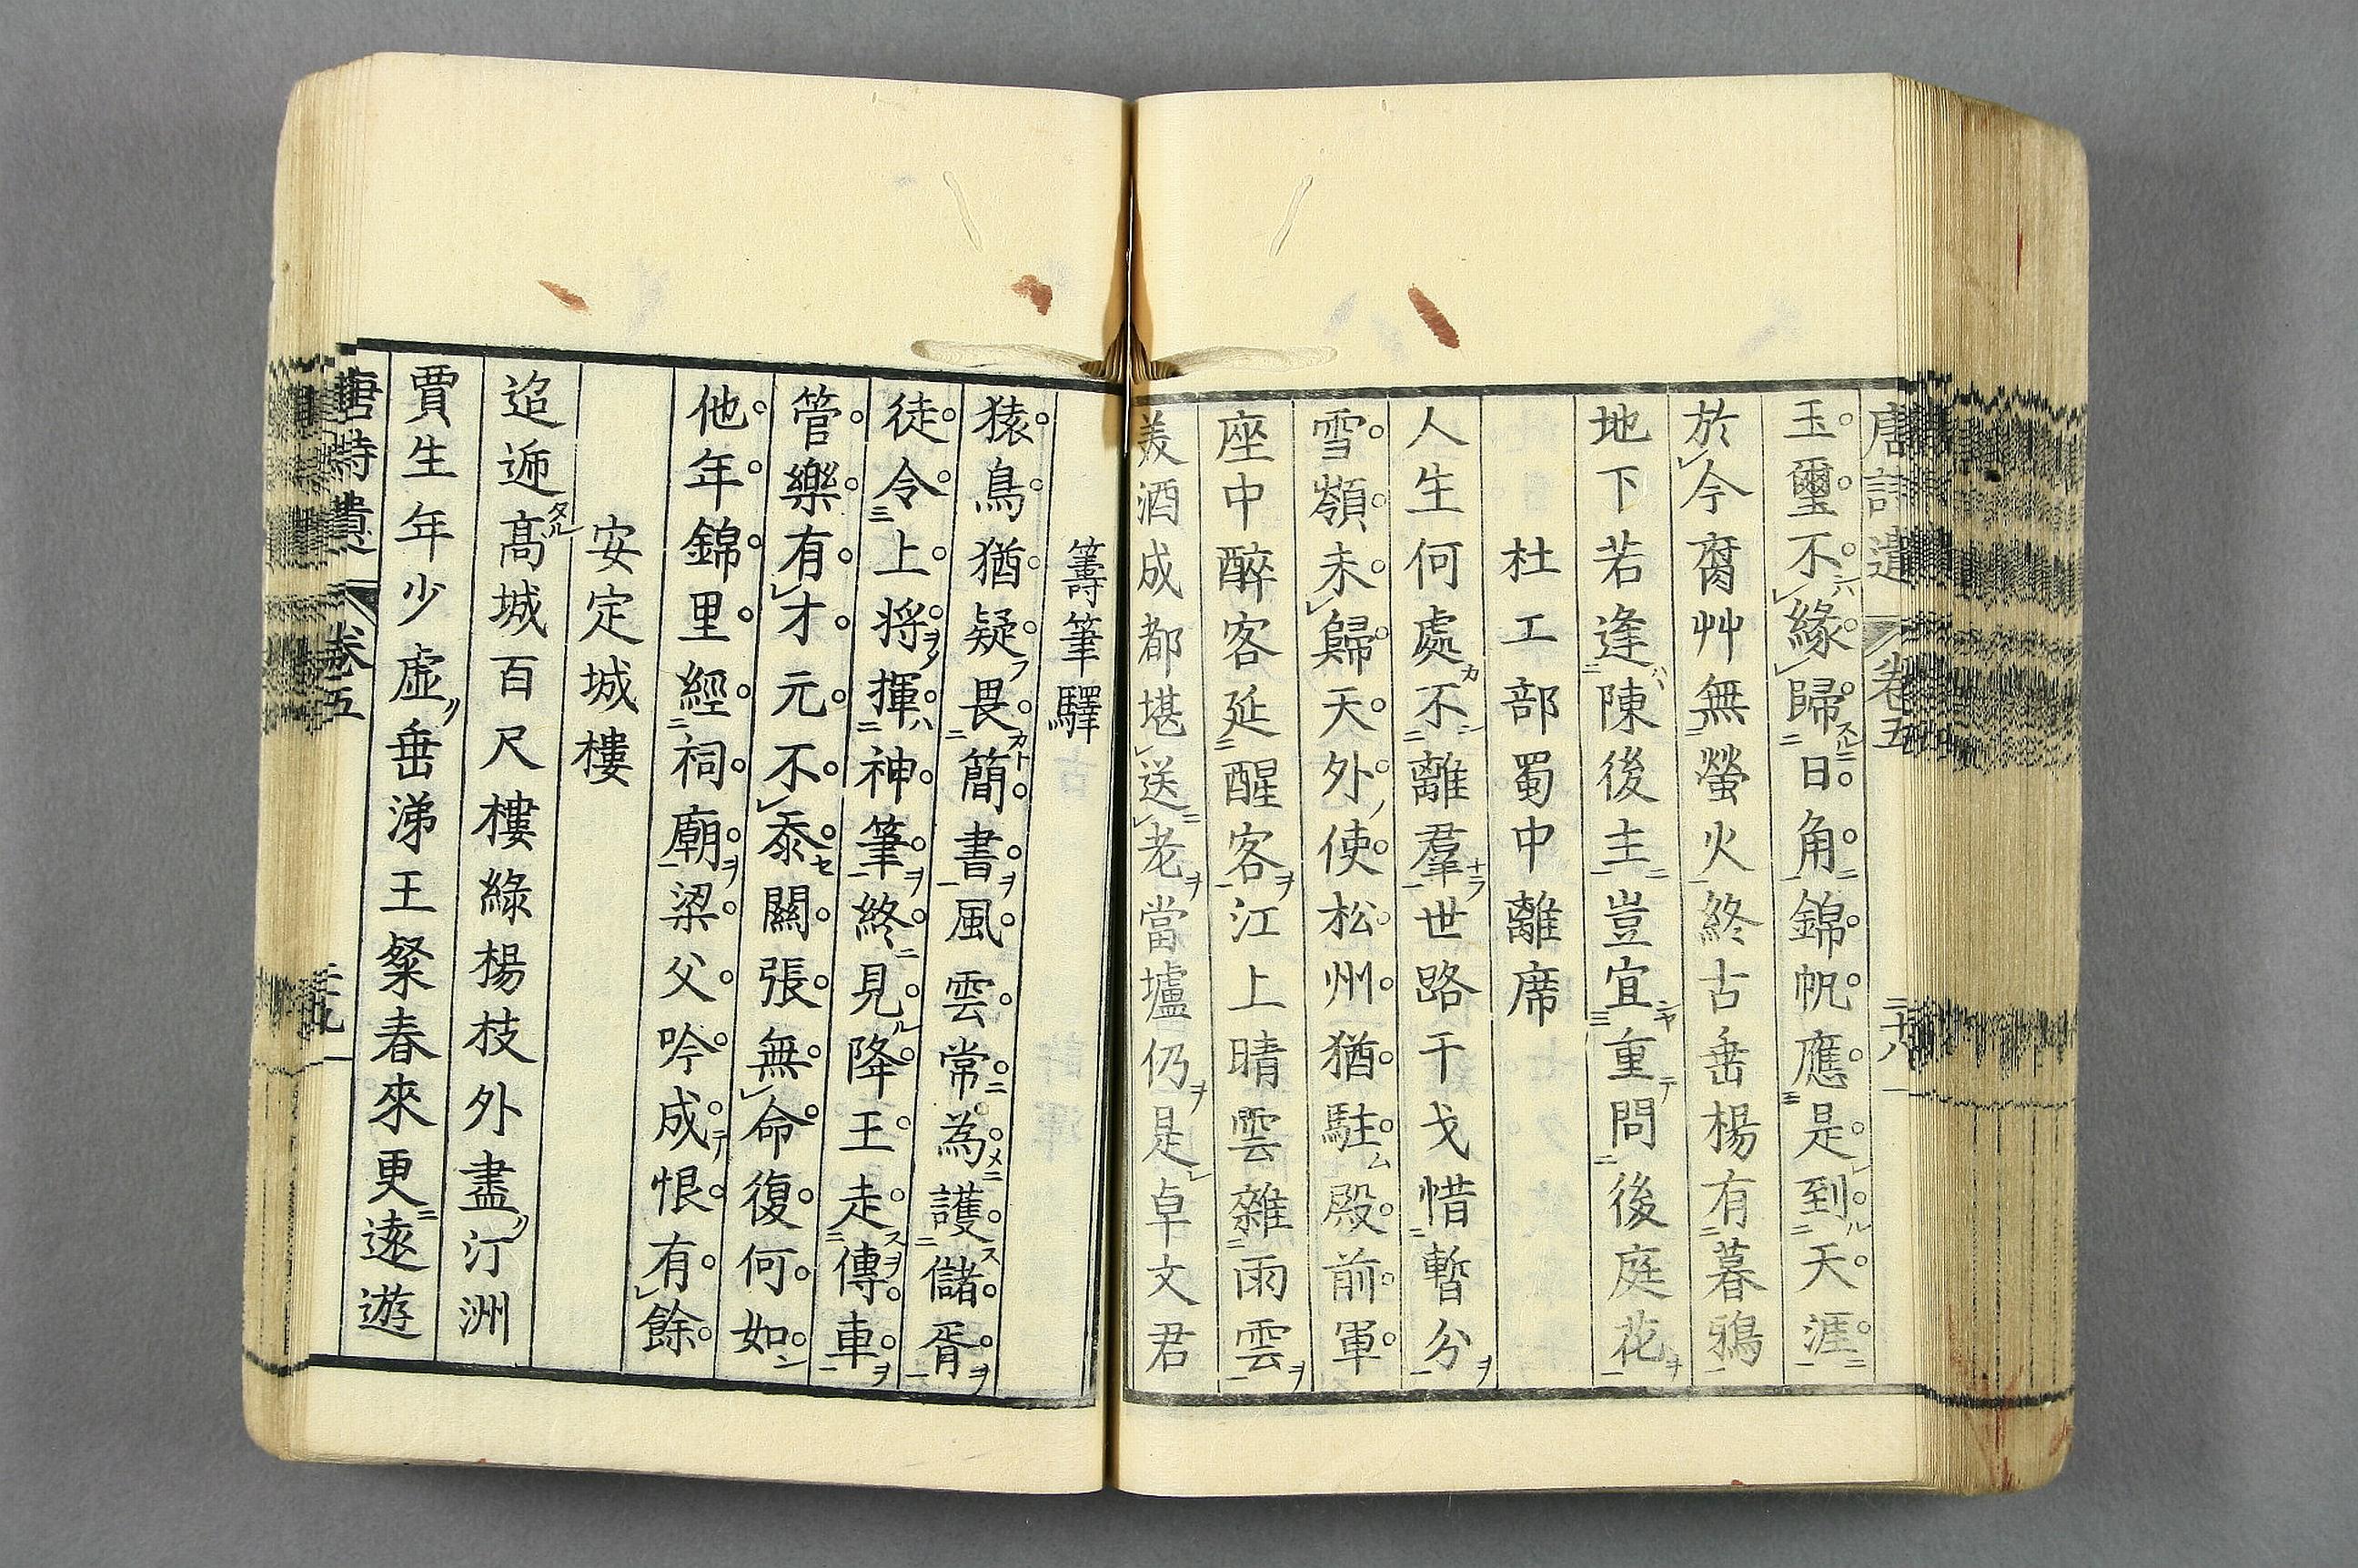 唐詩遺 卷五 三十八
玉璽不緣歸日角錦帆應是到天涯
於今腐艸無螢火終古垂楊有暮鴉
地下若逢陳後主豈宜重問後庭花
杜工部蜀中離席
人生何處不離羣世路干戈惜暫分
雪嶺未歸天外使松州猶駐殿前軍
座中醉客延醒客江上晴雲雜雨雲
美酒成都堪送老當壚仍是卓文君
籌筆驛
猿鳥猶疑畏簡書風雲常為護儲胥
徒令上將揮神筆終見降王走傳車
管樂有才元不忝關張無命復何如
他年錦里經祠廟梁父吟成恨有餘
安定城樓
迢遞高城百尺樓綠楊枝外盡汀洲
賈生年少虛垂涕王粲春來更遠遊
唐詩遺 卷五